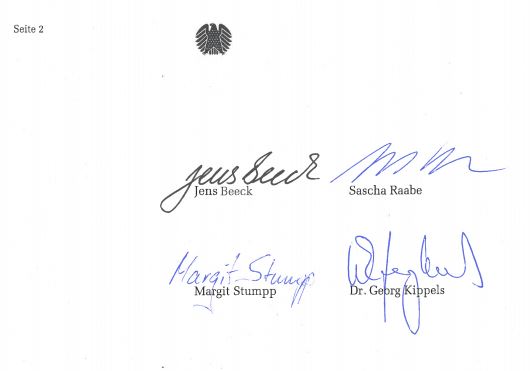 Seite 2
Jens Beeck
Jens Beeck
Sascha Raabe
Margit Stumpp
Margit Stumpp
Dr. Georg Kippels